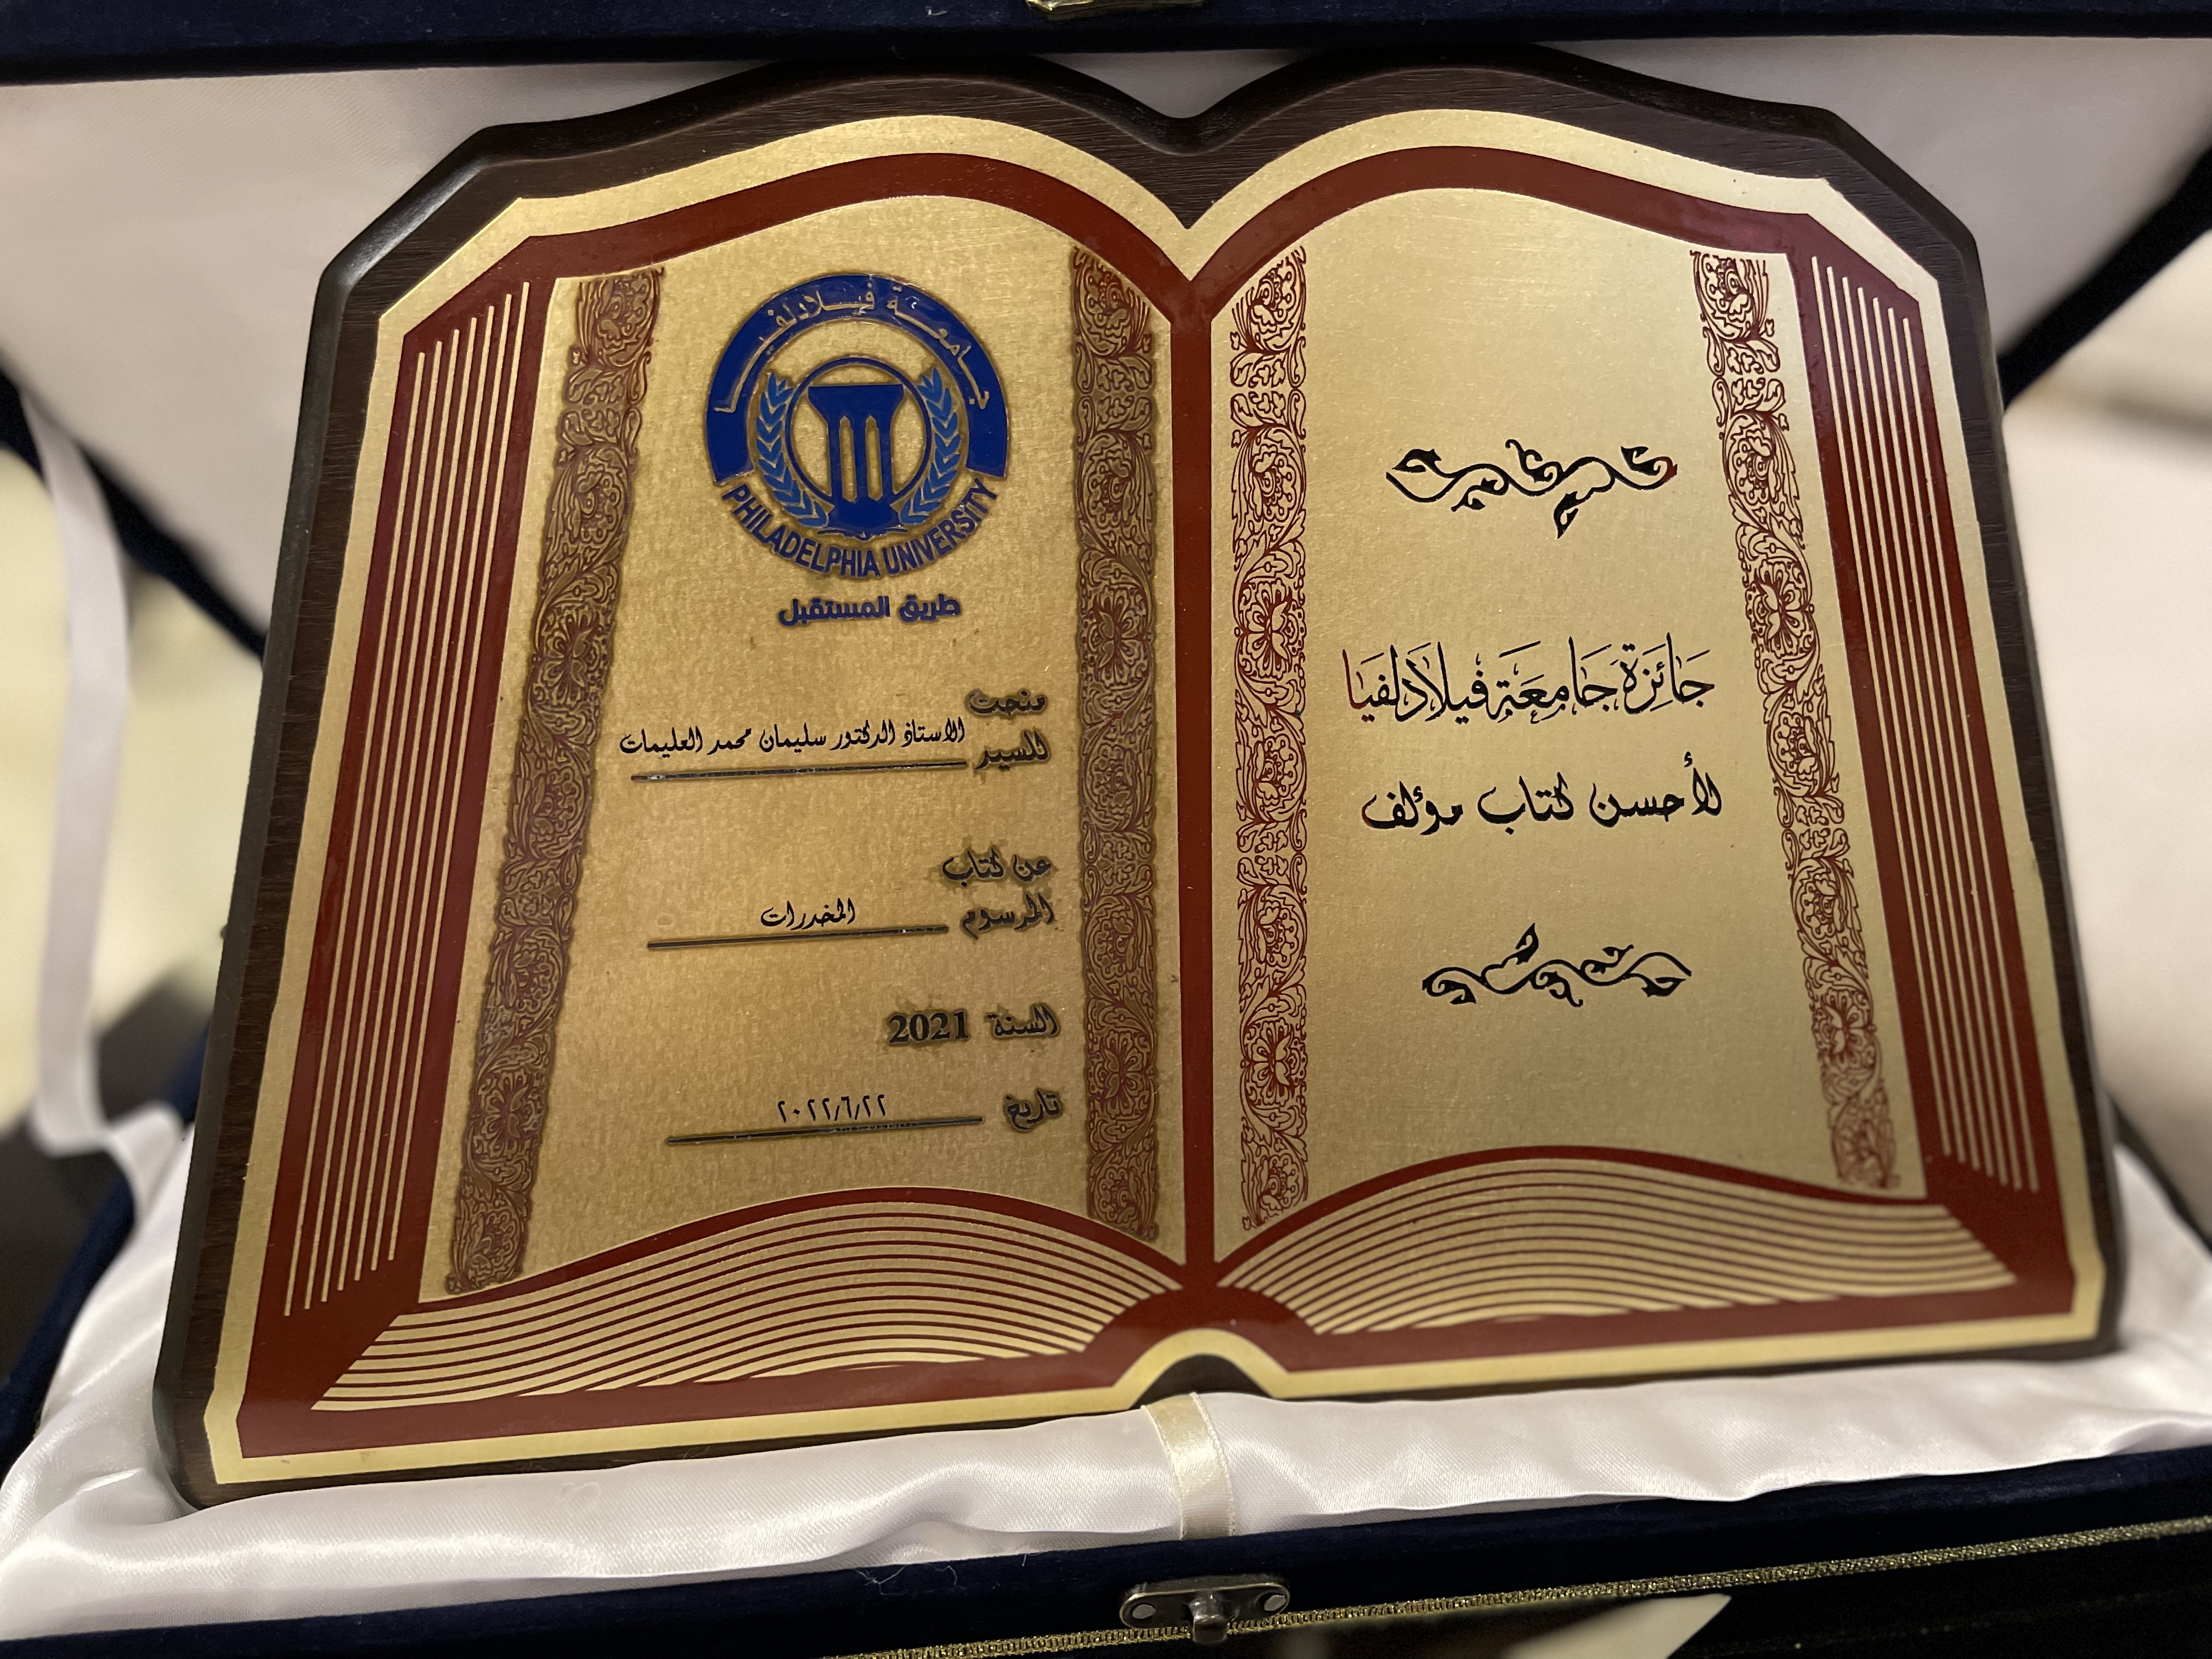 جَائِزَة جَامِعَة فيلادلفيَا
لأحسن كتاب مؤلف
جامعة فيلادلفيا
PHILADELPHIA UNIVERSITY
طريق المستقبل
منحت
للسيد الاستاذ الدكتور سليمان محمد العليمات
عن كتاب
المرسوم المخدرات
السنة 2021
تاريخ ٢٠٢٢/٦/٢٢